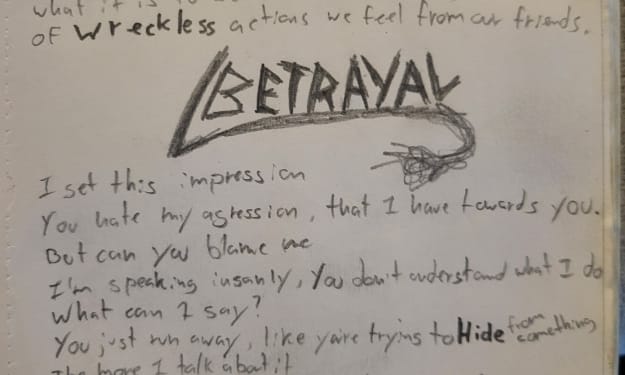 what it is to
of wreckless actions we feel from our friends.
BETRAYAL
I set this impression
You hate my agression, that I have towards you.
But can you blame me
I'm speaking insanly, You don't understand what I do
What can I say?
You just run away, like you're trying to Hide from something
The more I talk about it